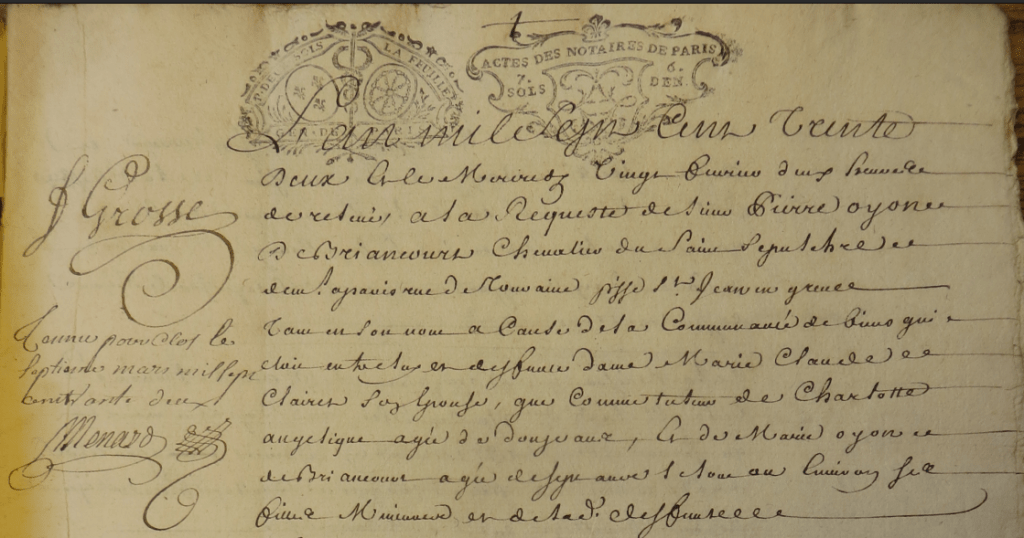 LA FEUILLE
GEN. DE
ACTES DES NOTAIRES DE PARIS
7. SOLS
6. DEN.
L'an mil Sept Cent Trente
Deux Et le Mercredy Vingt fevrier deux heures
de relevée a la Requeste de Sieur Pierre oyon
De Briancourt Chevalier du Saint Sepulchre
dem.t a paris rue de Touraine psse St. Jean en greve
Tant en son nom a Cause de la Communauté de biens qui
etoit entre luy et deffunte dame Marie Claude
Clairet Son Epouse, que Comme tuteur de Charlotte
angelique agée de douze ans, Et de Marie oyon
de Briancourt agée de sept ans le tout ou Environ ses
filles Mineures et de lad. deffunte
Grosse
Tenu pour Clos le
Septieme mars mil sept
cent trente deux
Menard